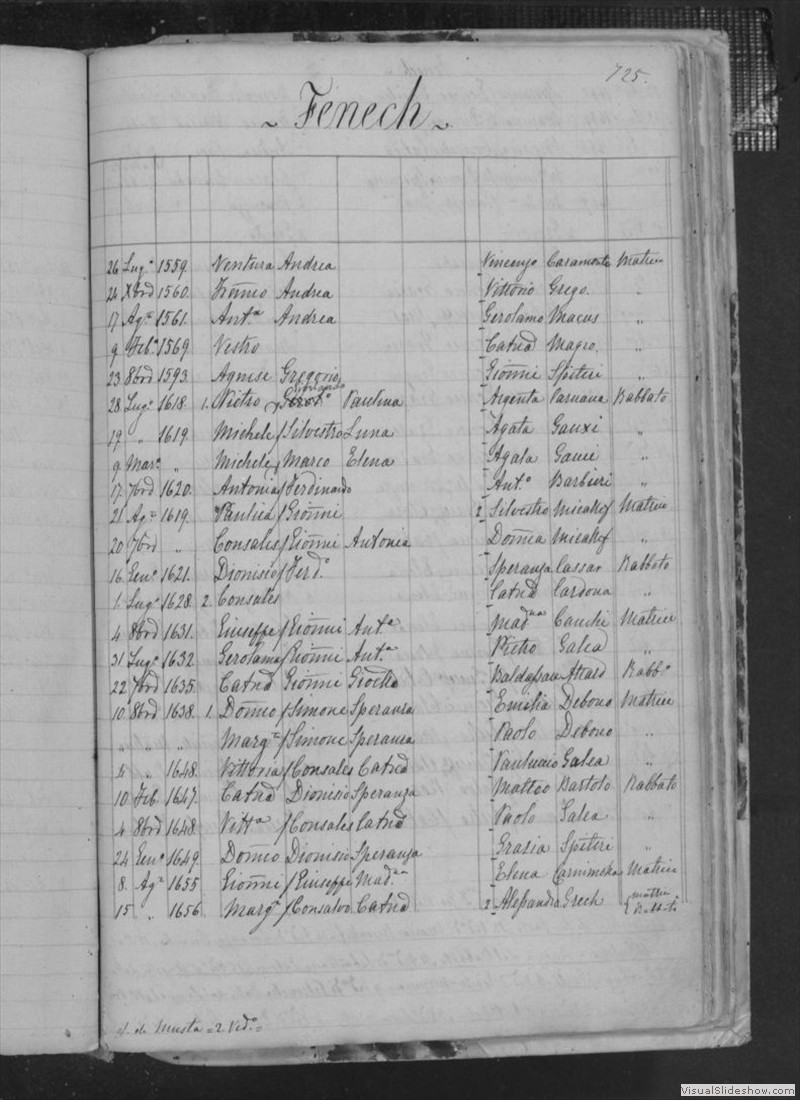 725.
~ Fenech ~
26 Lug.o 1559. Ventura Andrea Vincenzo Caramonte Matrice
24 Xbrd 1560. Andrea Vittorio Grego. "
17 Ag.o 1561. Ant.a Andrea Gerolamo Macus "
9 Feb.o 1569 Vestro Catnd Magro. "
23 8brd 1593. Agnese Greggorio Gionni Spiteri "
28 Lug.o 1618. 1. Pietro Paulina Argenta Caruana Rabbato
19 " 1619. Michele / Silvestro Luna Agata Gauxi "
9 Mar.o " Michele / Marco Elena Agata Gauci "
17 7brd 1620. Antonia / Ferdinando Ant.o Barbieri "
21 Ag.o 1619. / Gionni 2 Silvestro Matrice
20 7brd " Consales / Gionni Antonia "
16 Gen.o 1621. Dionisio / Ferd.o Speranza Cassar Rabbato
1 Lug.o 1628. 2. Consales Catnd Cardona "
4 8brd 1631. Giuseppe / Gionni Ant.a Mad.na Matrice
31 Lug.o 1632. Gerolama / Gionni Ant.a Pietro Galea "
22 7brd 1635. Catnd Gionni Baldassare Attard Rabb.o
10 8brd 1638. 1. Domco / Simone Speranza Emilia Debono Matrice
" " " Marg.a / Simone Speranza Paolo Debono "
4 " 1648. Vittoria / Consales Catnd Galea "
10 Feb 1647. Catnd Dionisio Speranza Matteo Bartolo Rabbato
4 8brd 1648. Vitt.a / Consales Catnd Paolo Galea "
24 Gen.o 1649. Domco Dionisio Speranza Grasia Spiteri "
8. Ag.o 1655. Gionni / Giuseppe Mad.na Elena Matrice
15 " 1656. Marg.a / Consalvo Catnd 2 Alessandra Grech
de Musta = 2 Ved.o =
VisualSlideshow.com